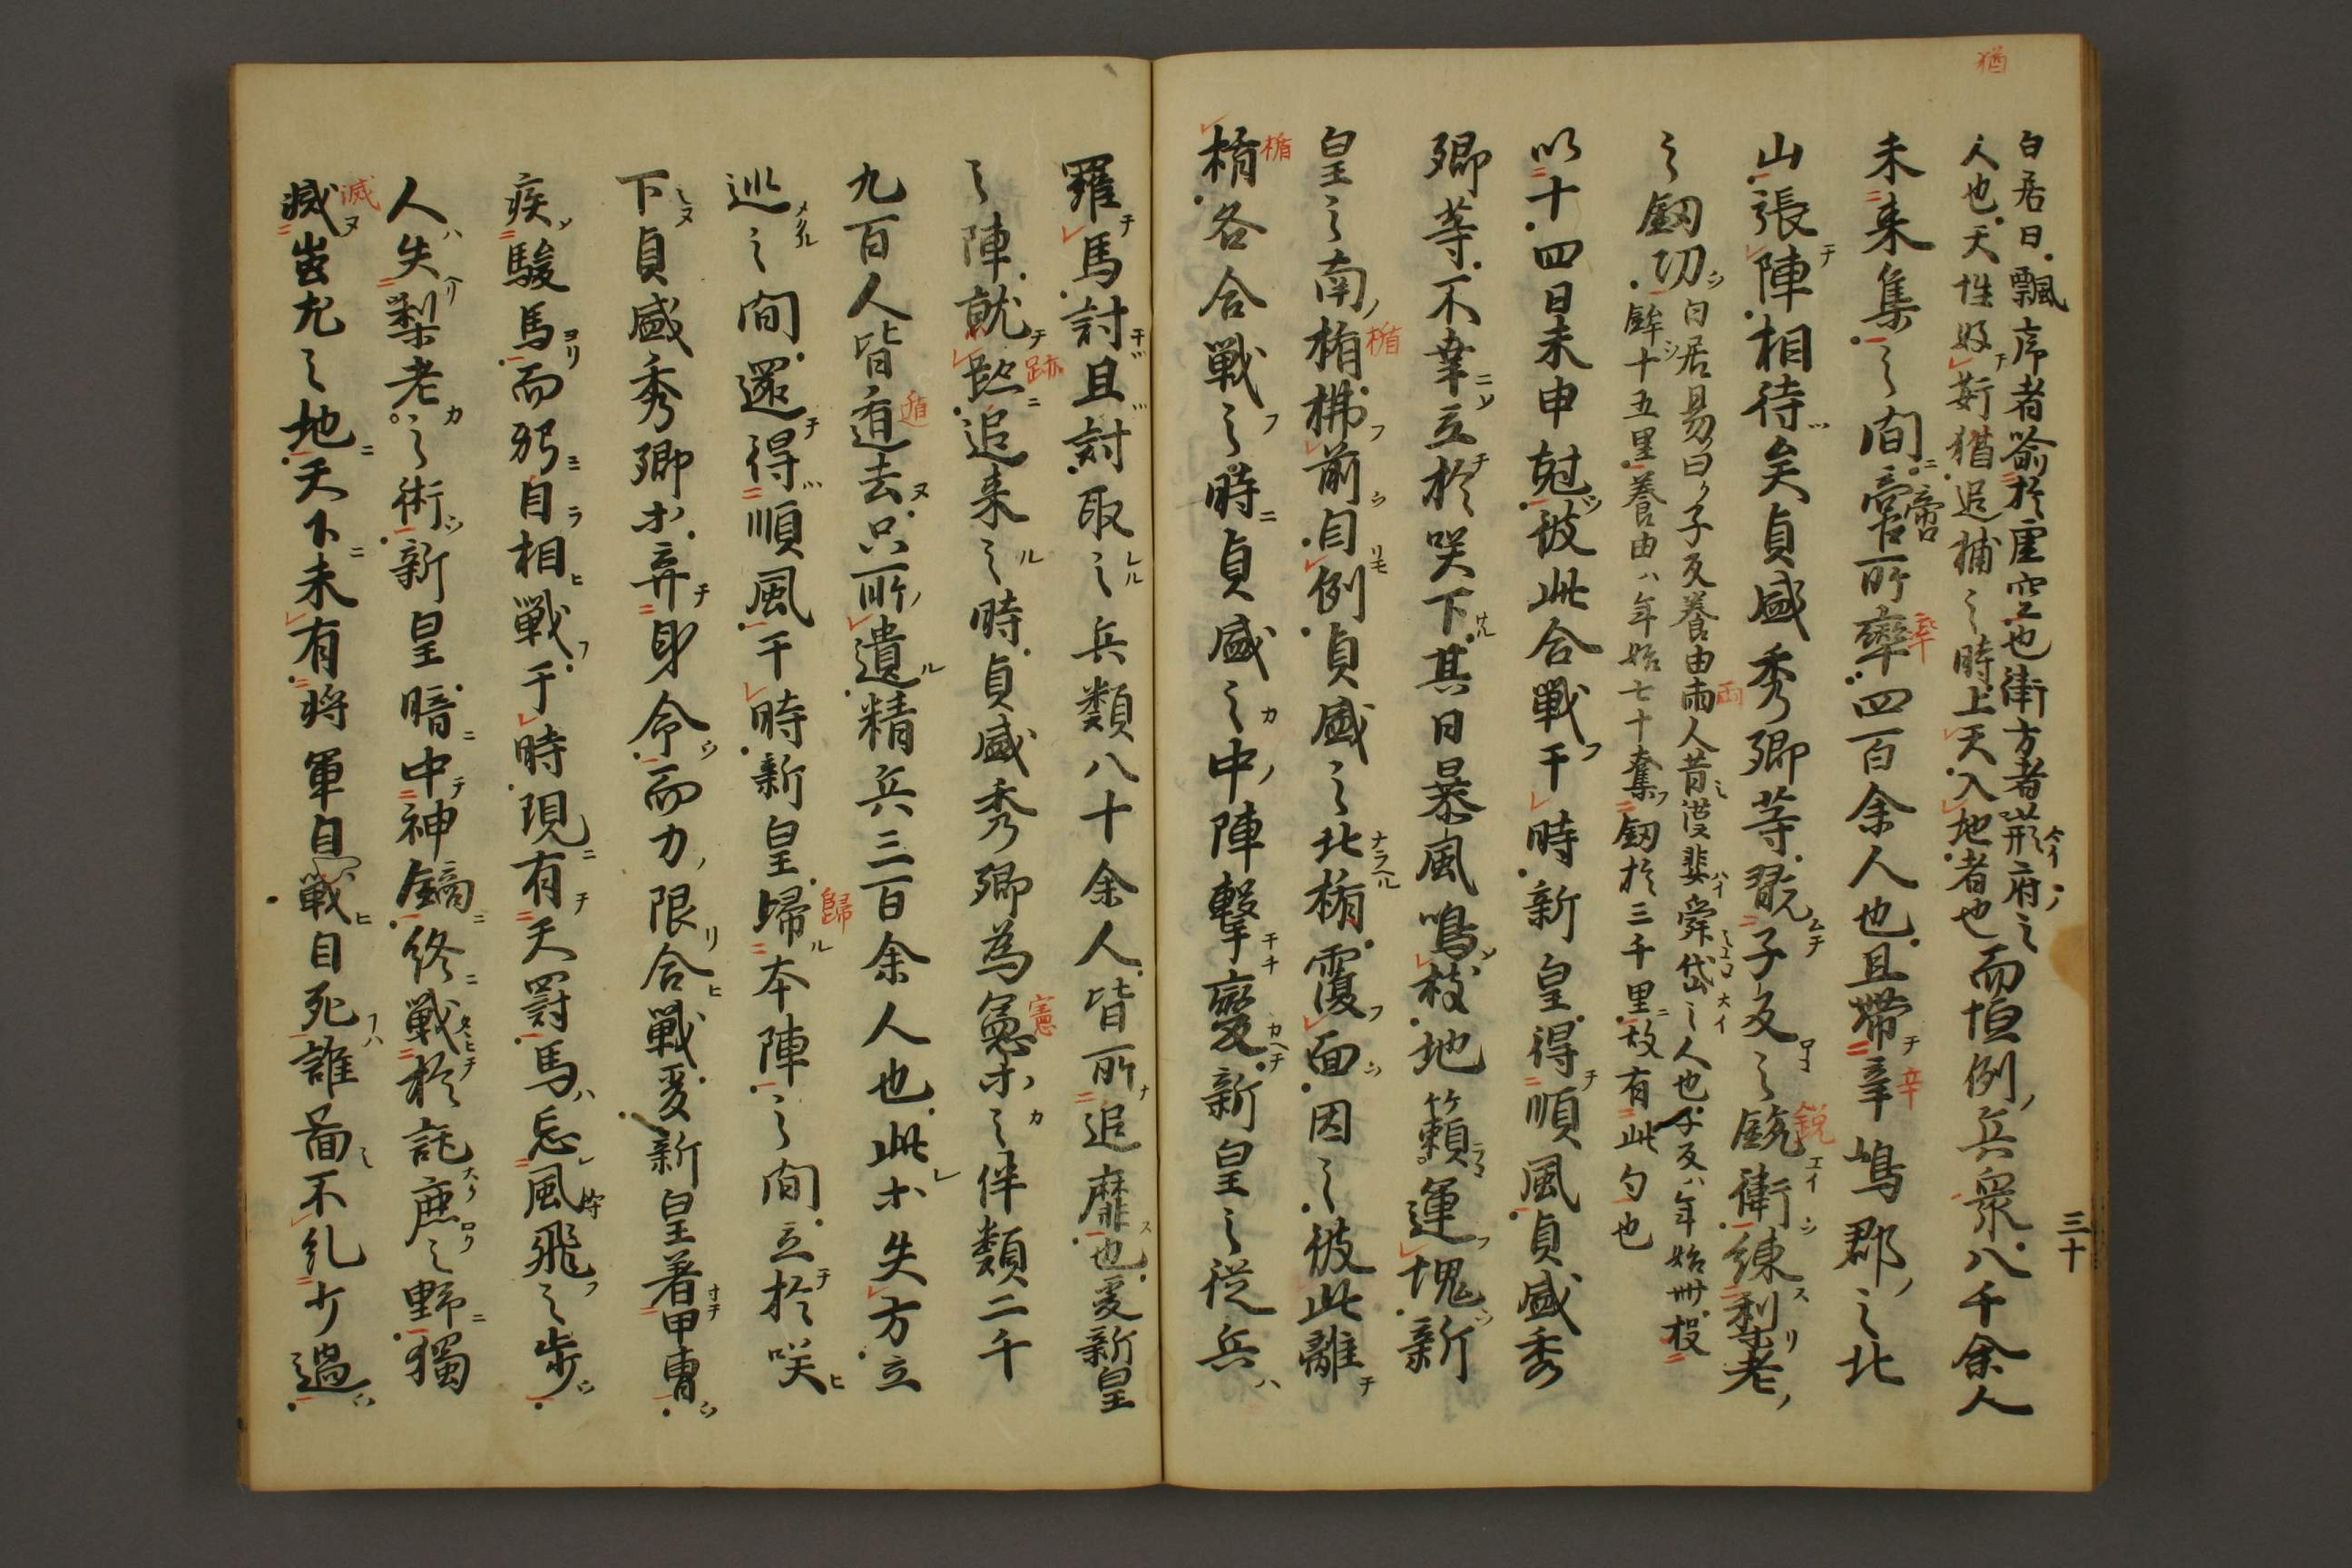 白居曰飄序者喩於虚空也衛方者荊府之
人也天性好奸猾追捕之時上天入地者也而恒例兵衆八千余人
未来集之間啻所率四百余人也且帯辛嶋郡之北
山張陣相待矣貞盛秀郷等翫子反之鋭衛練梨老
之釼功白居易曰子反養由両人昔漢斐舜岱之人也子反八年始卅投
鉾十五里養由八年始七十奪釼於三千里故有此勺也
以十四日未申尅彼此合戦于時新皇得順風貞盛秀
郷等不幸立於咲下其日暴風鳴枝地籟運塊新
皇之南楯払前自例貞盛之北楯覆面因之彼此離
楯各合戦之時貞盛之中陣撃變新皇之従兵
羅馬討且討取之兵類八十余人皆所追靡也爰新皇
之陣就跡追来之時貞盛秀郷為憲等之伴類二千
九百人皆遁去只所遺精兵三百余人也此等失方立
巡之間還得順風于時新皇歸本陣之間立於咲
下貞盛秀郷等弃身命而力限合戦爰新皇着甲冑
疾駿馬而躬自相戦于時現有天罸馬忘風飛之歩
人失梨老之術新皇暗中神鏑終戦於託鹿之野獨
滅蚩尤之地天下未有将軍自戦自死誰啚不糺少過
猶
啻
率
辛
鋭
両
楯
楯
跡
憲
遁
歸
滅
三十